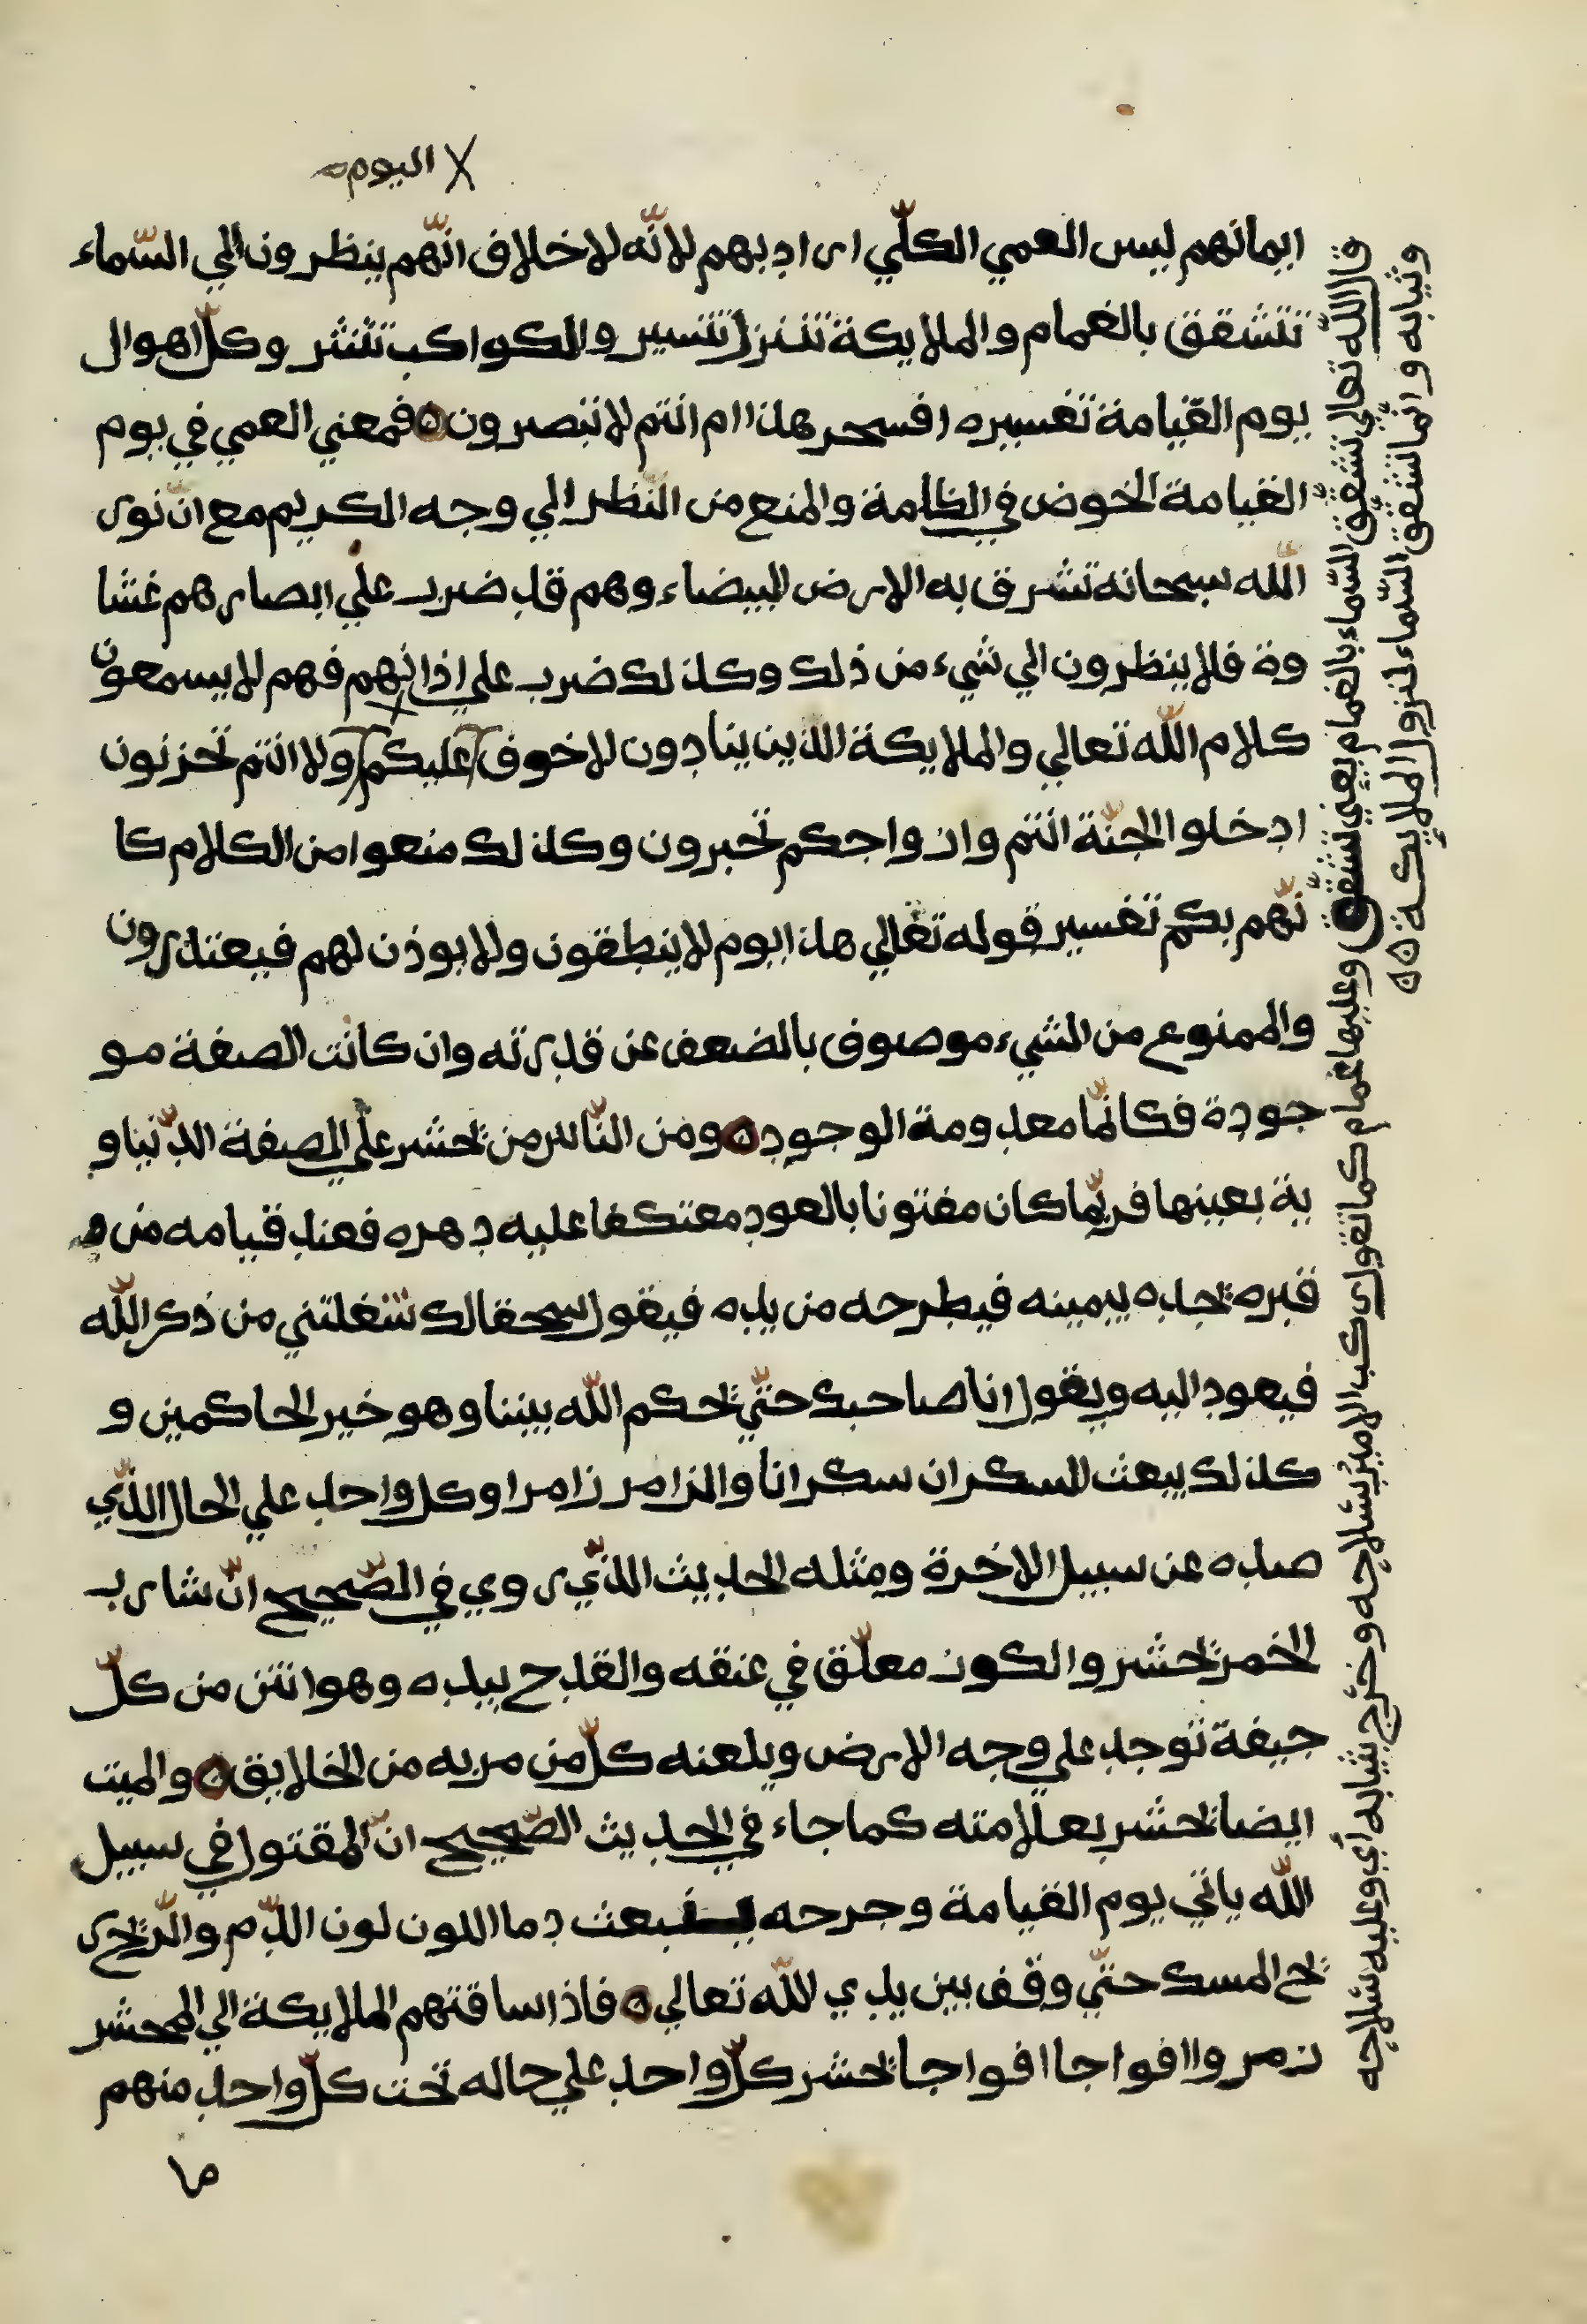 اليوم
ايمانهم ليس العمي الكلّي اراد بهم لانّه لا خلاف انّهم ينظرون الي السّماء
تتشقق بالغمام والملايكة تتنزل تتسير والكواكب تنثر وكلّ اهوال
يوم القيامة تفسيره افسحر هاذا ام انتم لا تبصرون فمعني العمي في يوم
القيامة الخوض في الظلمة والمنع من النّظر الي وجه الكريم مع انّ نور
اللّه سبحانه تشرق به الارض البيضاء وهم قد ضرب علي ابصارهم غشا
وة فلا ينظرون الي شيء من ذلك وكذلك ضرب علي اذانهم فهم لا يسمعون
كلام اللّه تعالي والملايكة الذين ينادون لا خوف عليكم ولا انتم تحزنون
ادخلوا الجنّة انتم وازواجكم تحبرون وكذلك منعوا من الكلام كا
نّهم بكم تفسير قوله تعالي هاذا يوم لا ينطقون ولا يوذن لهم فيعتذرون
والممنوع من الشيء موصوف بالضعف عن قدرته وان كانت الصفة مو
جودة فكانّما معدومة الوجود ومن النّاس من يحشر علي الصفة الدّنياو
ية بعينها فربّما كان مفتونا بالعود معتكفا عليه دهره فعند قيامه من
قبره يجده بيمينه فيطرحه من يده فيقول سحقا لك شغلتني من ذكر اللّه
فيعود اليه ويقول انا صاحبك حتّي يحكم اللّه بيننا وهو خير الحاكمين و
كذلك يبعث السكران سكرانا والزامر زامرا وكل واحد علي الحال الذّي
صده عن سبيل الاخرة ومثله الحديث الذّي روي في الصّحيح انّ شارب
الخمر يحشر والكوز معلّق في عنقه والقدح بيده وهو انتن من كلّ
جيفة توجد علي وجه الارض ويلعنه كلّ من مر به من الخلايق والميت
ايضا يحشر بعلامته كما جاء في الحديث الصّحيح انّ المقتول في سبيل
اللّه ياتي يوم القيامة وجرحه يبعث دما اللون لون الدّم والرّيح ر
يح المسك حتّي وقف بين يدي اللّه تعالي فاذا ساقتهم الملايكة الي المحشر
زمروا افواجا افواجا يحشر كلّ واحد علي حاله تحت كلّ واحد منهم
قال اللّه تعالي تشقّق السّماء بالغمام يعني تشقّق وعليها غمام كما تقول ركب الامير بسلاحه وخرج بثيابه اي وعليه سلاحه
وثيابه وانّما تشقّق السّماء لنزول الملايكة